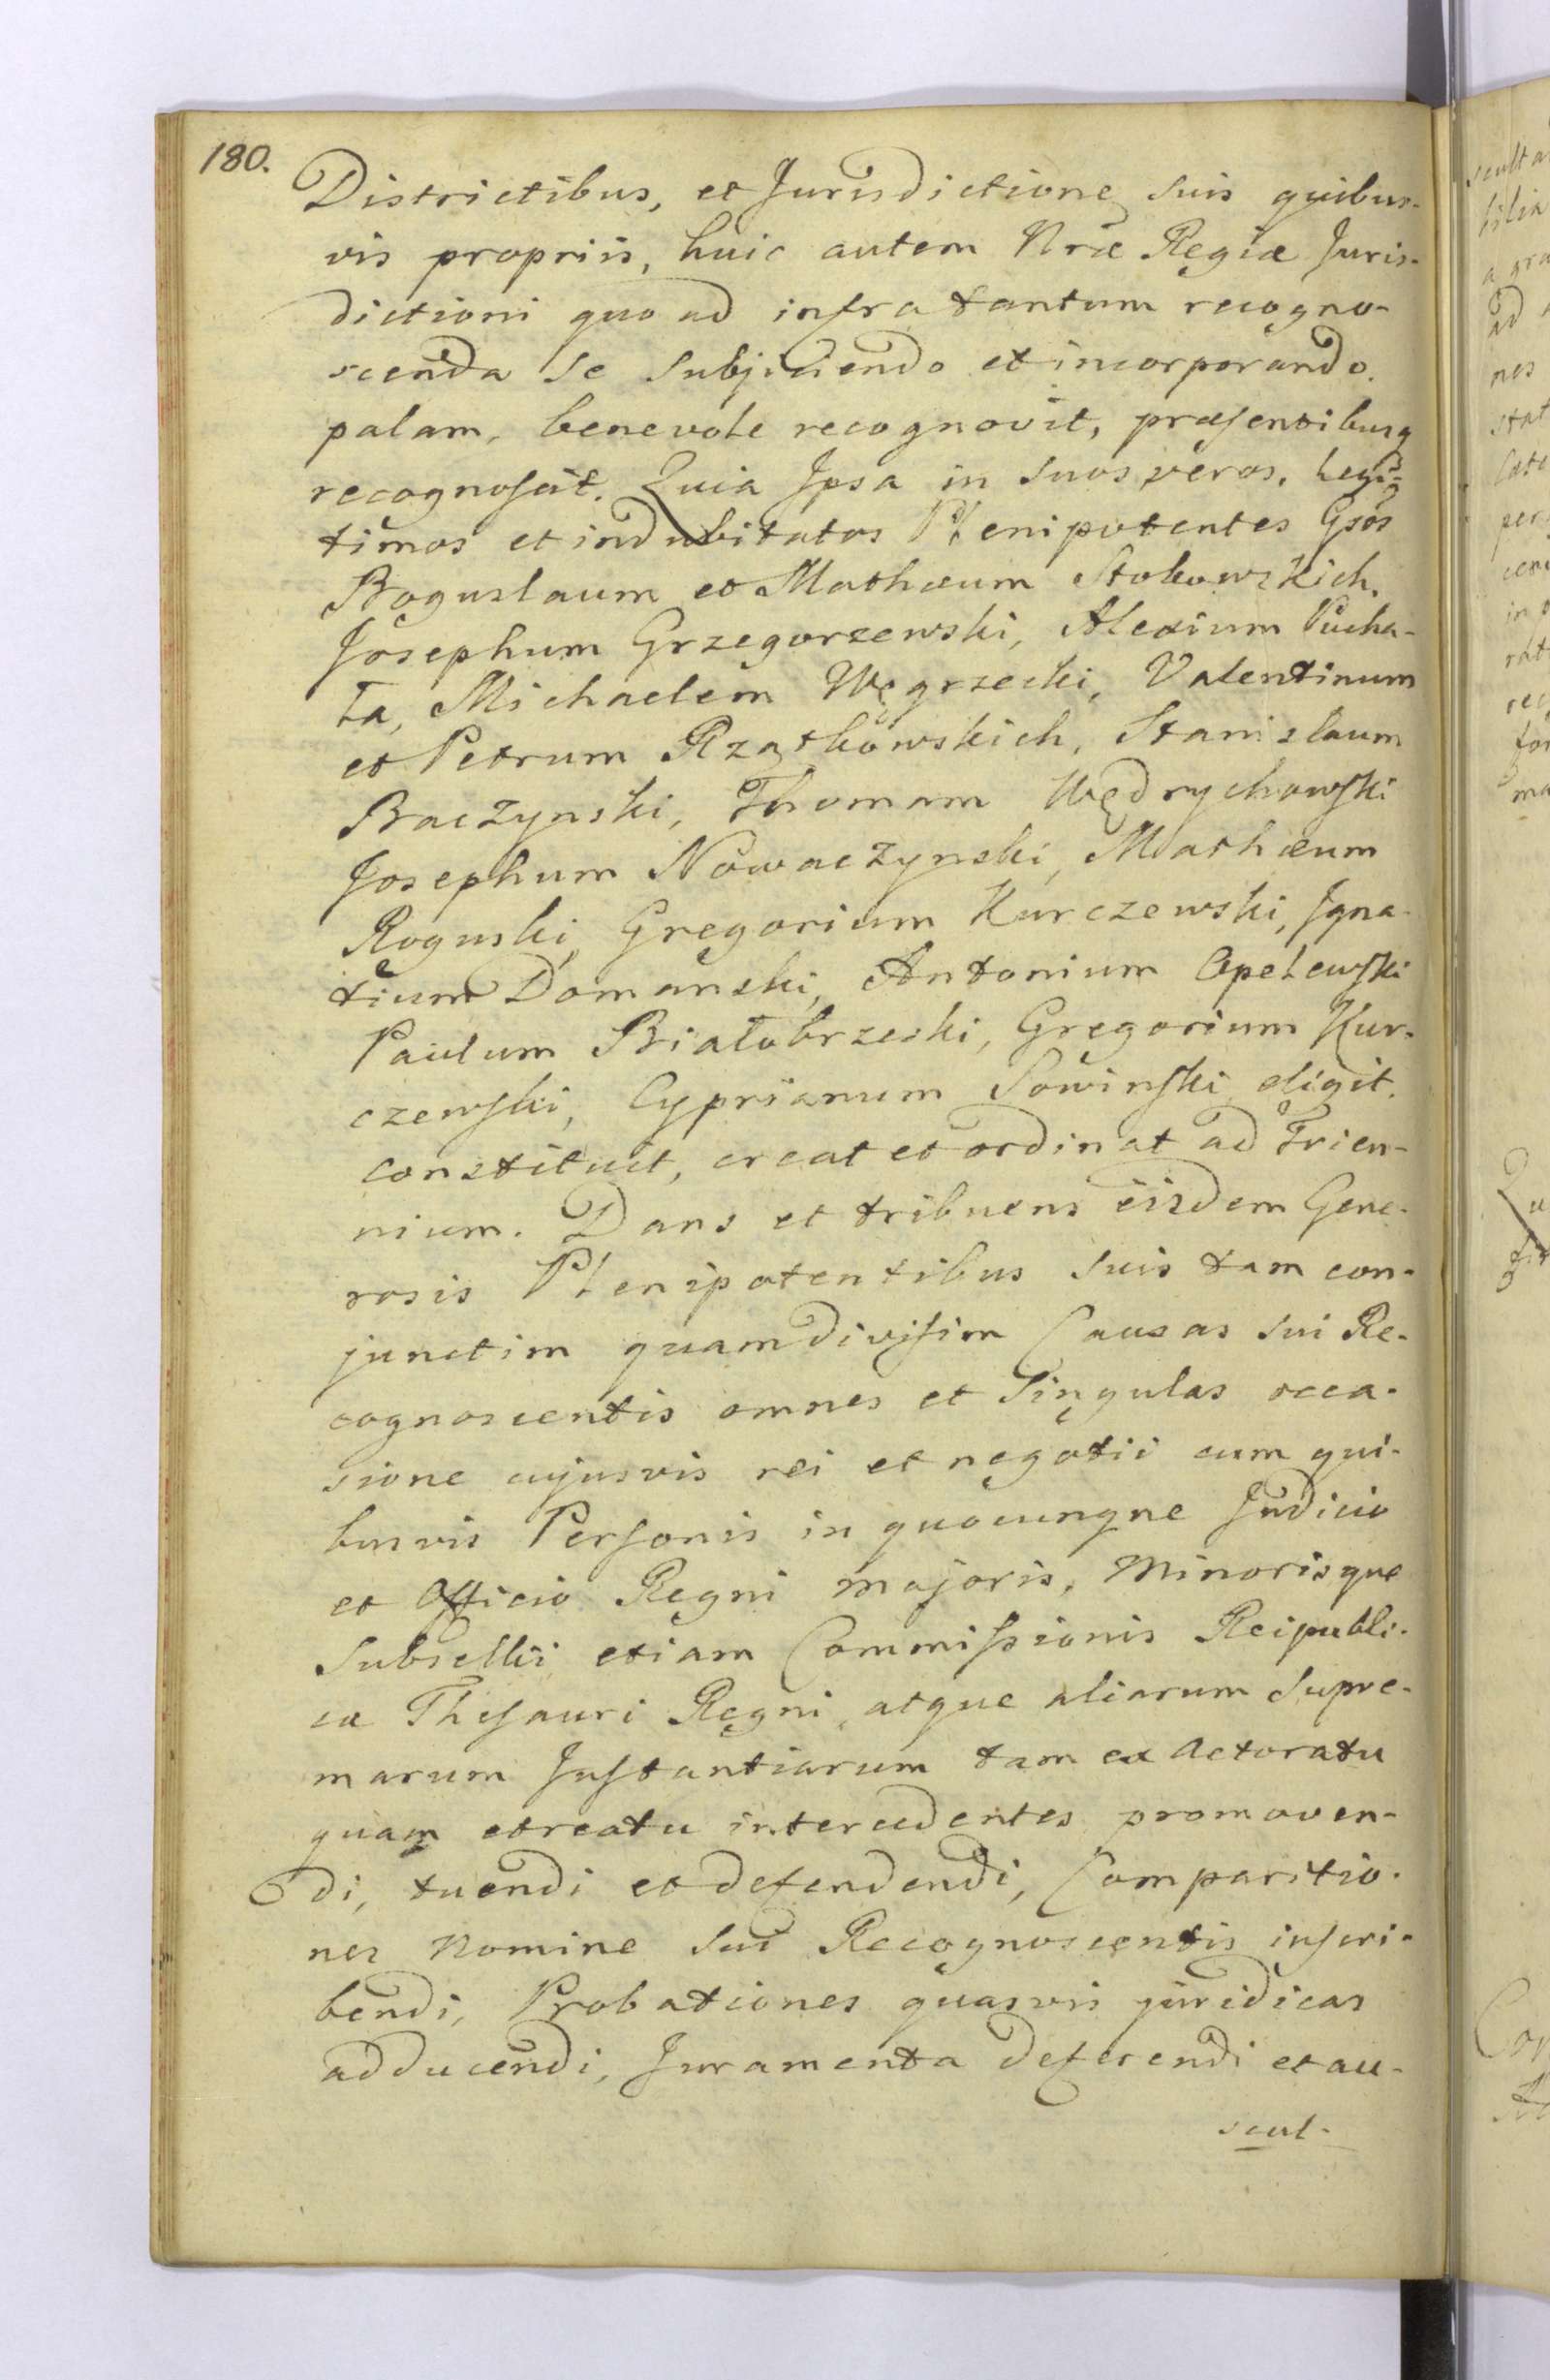 180.
Districtibus, et Jurisdictione suis quibus-
vis propriis, huic autem Nræ Regiæ Juris-
dictioni quo ad infra tantum recogno-
scenda se subjiciendo et incorporando.
palam, benevole recognovit, præsentibusq
recognoscit. Quia Ipsa in suos veros, legi-
timos et indubitatos Plenipotentes Gsos
Boguslaum et Mathæum Stokowskich,
Josephum Grzegorzewski, Alexium Pucha-
ła, Michaelem Węgrzecki, Valentinum
et Petrum Rzątkowskich, Stanislaum
Baczynski, Thomam Wędrychowski
Josephum Nowaczynski, Mathæum
Roguski, Gregorium Kurczewski, Igna-
tium Domanski, Antonium Opelewski
Paulum Białobrzeski, Gregorium Kur-
czewski, Cyprianum Sowinski eligit.
constituit, creat et ordinat ad Trien-
nium. Dans et tribuens eisdem Gene-
rosis Plenipotentibus suis tam con-
junctim quam divisim Causas sui Re-
cognoscentis omnes et singulas occa-
sione cujusvis rei et negotii cum qui-
busvis Personis in quocunque Judicio
et Officio Regni majoris, Minorisque
Subsellii etiam Commissionis Reipubli-
cæ Thesauri Regni, atque aliarum Supre-
marum Instantiarum tam ex Actoratu
quam et reatu intercedentes promoven-
di, tuendi et defendendi, Comparitio-
nes Nomine sui Recognoscentis inscri-
bendi, Probationes quasvis juridicas
adducendi, Juramenta deferendi et au-
scul-